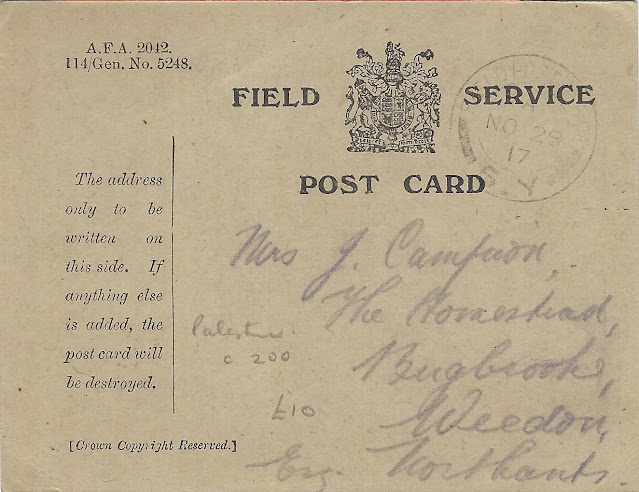 A.F.A. 2042.
114/Gen. No. 5248.
FIELD SERVICE
POST CARD
NO 28
17
The address
only to be
written on
this side. If
anything else
is added, the
post card will
be destroyed.
[Crown Copyright Reserved.]
Mrs J. Campion,
The Homestead,
Bugbrook,
Weedon,
Northants.
Palestine
c 200
£10